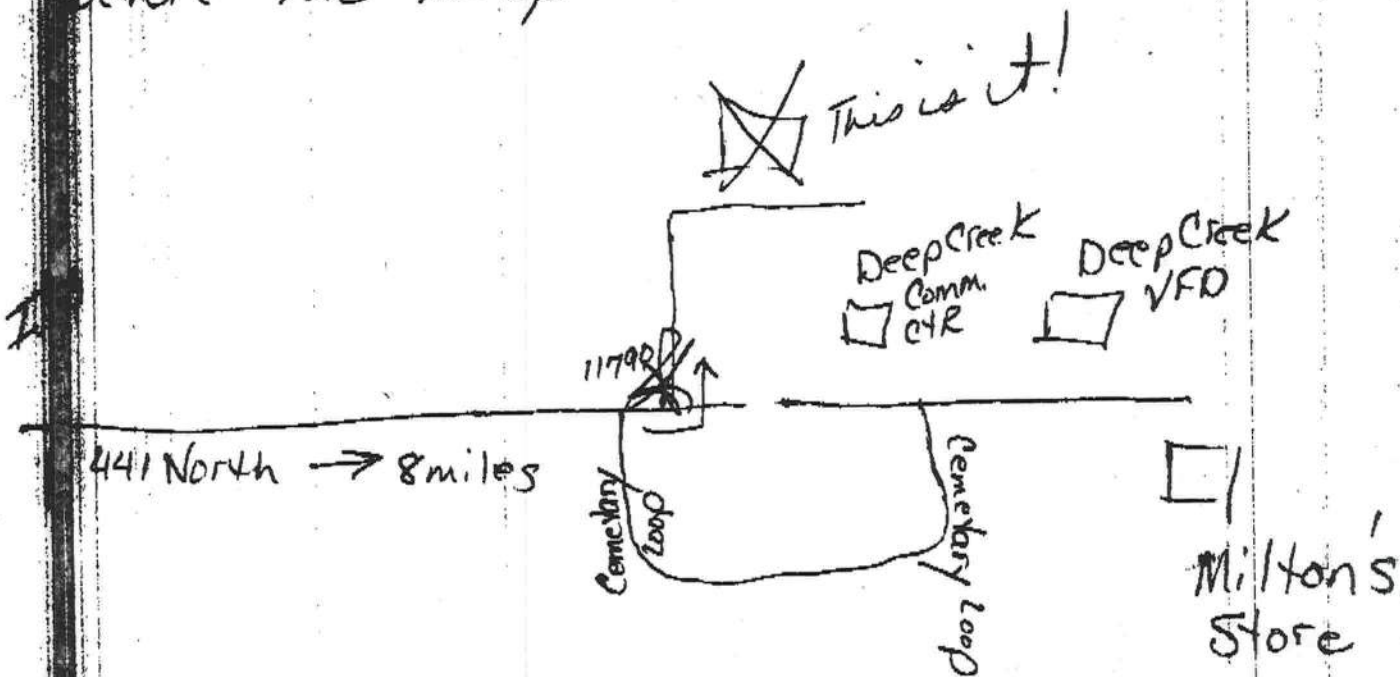 This is it!
Deep Creek
Comm.
CtR
Deep Creek
VFD
441 North → 8 miles
Cemetary
Loop
Cemetary Loop
Milton's
Store